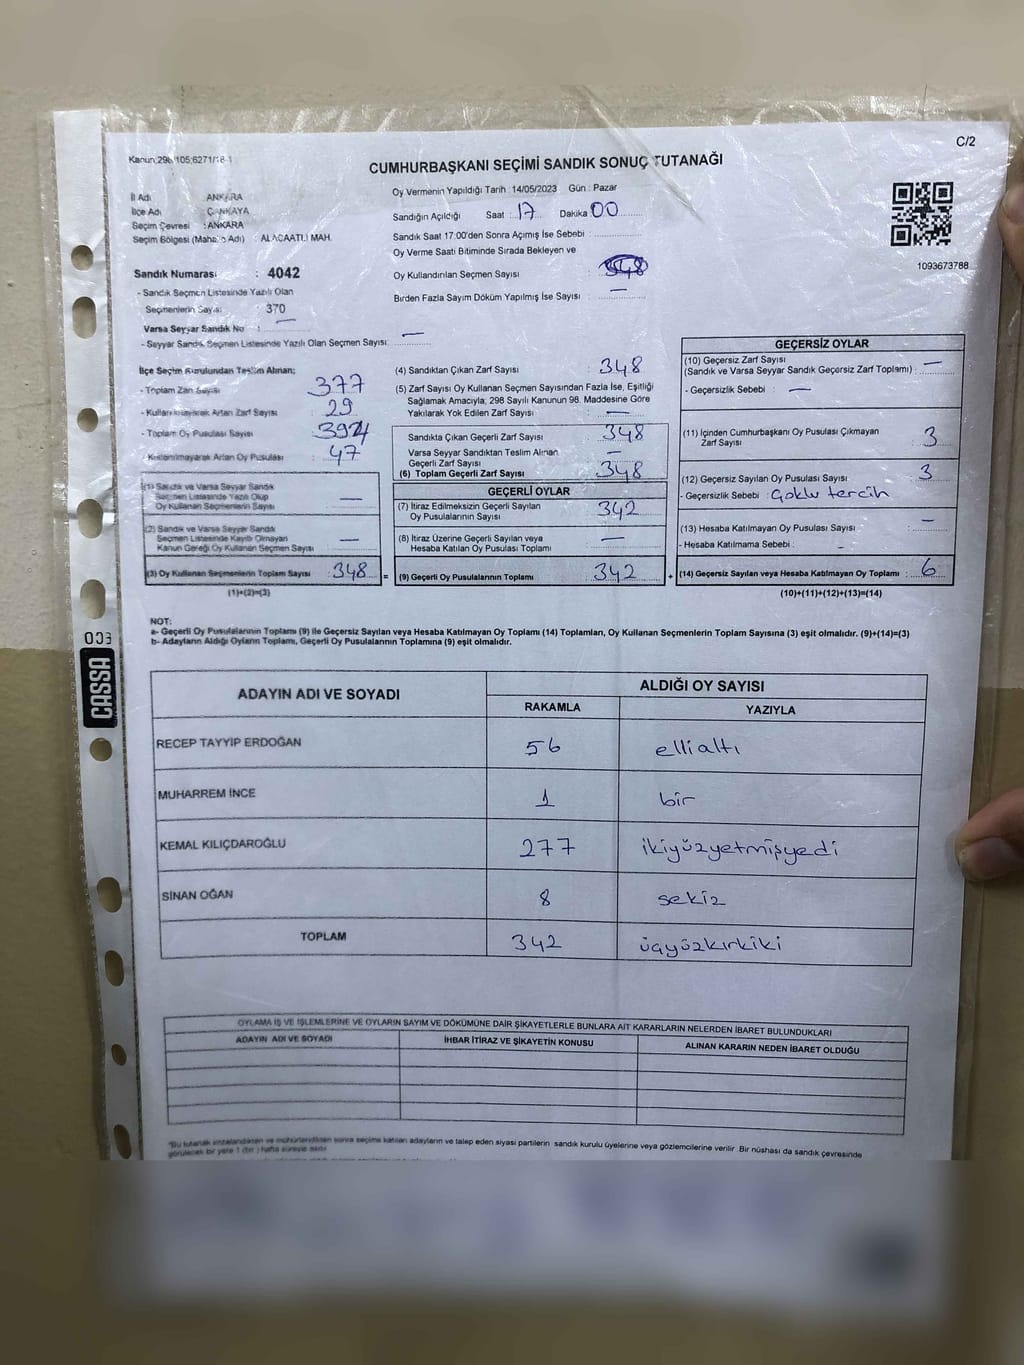 C/2
Kanun;298/105;6271/18-1
CUMHURBAŞKANI SEÇİMİ SANDIK SONUÇ TUTANAĞI
İl Adı : ANKARA
İlçe Adı : ÇANKAYA
Seçim Çevresi : ANKARA
Seçim Bölgesi (Mahalle Adı) : ALACAATLI MAH.
Sandık Numarası : 4042
- Sandık Seçmen Listesinde Yazılı Olan
Seçmenlerin Sayısı : 370
Varsa Seyyar Sandık No : —
- Seyyar Sandık Seçmen Listesinde Yazılı Olan Seçmen Sayısı : —
Oy Vermenin Yapıldığı Tarih : 14/05/2023 Gün : Pazar
Sandığın Açıldığı Saat : 17 Dakika 00
Sandık Saat 17:00'den Sonra Açımış İse Sebebi :
Oy Verme Saati Bitiminde Sırada Bekleyen ve
Oy Kullandırılan Seçmen Sayısı :
Birden Fazla Sayım Döküm Yapılmış İse Sayısı : —
1093673788
İlçe Seçim Kurulundan Teslim Alınan;
- Toplam Zarf Sayısı : 377
- Kullanılmayarak Artan Zarf Sayısı : 29
- Toplam Oy Pusulası Sayısı :
- Kullanılmayarak Artan Oy Pusulası : 47
(1) Sandık ve Varsa Seyyar Sandık
Seçmen Listesinde Yazılı Olup
Oy Kullanan Seçmenlerin Sayısı : —
(2) Sandık ve Varsa Seyyar Sandık
Seçmen Listesinde Kayıtlı Olmayan
Kanun Gereği Oy Kullanan Seçmen Sayısı : —
(3) Oy Kullanan Seçmenlerin Toplam Sayısı : 348 =
(1)+(2)=(3)
(4) Sandıktan Çıkan Zarf Sayısı : 348
(5) Zarf Sayısı Oy Kullanan Seçmen Sayısından Fazla İse, Eşitliği
Sağlamak Amacıyla; 298 Sayılı Kanunun 98. Maddesine Göre
Yakılarak Yok Edilen Zarf Sayısı : —
Sandıkta Çıkan Geçerli Zarf Sayısı : 348
Varsa Seyyar Sandıktan Teslim Alınan
Geçerli Zarf Sayısı : —
(6) Toplam Geçerli Zarf Sayısı : 348
GEÇERLİ OYLAR
(7) İtiraz Edilmeksizin Geçerli Sayılan
Oy Pusulalarının Sayısı : 342
(8) İtiraz Üzerine Geçerli Sayılan veya
Hesaba Katılan Oy Pusulası Toplamı : —
(9) Geçerli Oy Pusulalarının Toplamı : 342 +
GEÇERSİZ OYLAR
(10) Geçersiz Zarf Sayısı
(Sandık ve Varsa Seyyar Sandık Geçersiz Zarf Toplamı) : —
- Geçersizlik Sebebi : —
(11) İçinden Cumhurbaşkanı Oy Pusulası Çıkmayan
Zarf Sayısı : 3
(12) Geçersiz Sayılan Oy Pusulası Sayısı : 3
- Geçersizlik Sebebi : Çoklu tercih
(13) Hesaba Katılmayan Oy Pusulası Sayısı : —
- Hesaba Katılmama Sebebi : -
(14) Geçersiz Sayılan veya Hesaba Katılmayan Oy Toplamı : 6
(10)+(11)+(12)+(13)=(14)
NOT:
a- Geçerli Oy Pusulalarının Toplamı (9) ile Geçersiz Sayılan veya Hesaba Katılmayan Oy Toplamı (14) Toplamları, Oy Kullanan Seçmenlerin Toplam Sayısına (3) eşit olmalıdır. (9)+(14)=(3)
b- Adayların Aldığı Oyların Toplamı, Geçerli Oy Pusulalarının Toplamına (9) eşit olmalıdır.
CASSA
ADAYIN ADI VE SOYADI
ALDIĞI OY SAYISI
RAKAMLA YAZIYLA
RECEP TAYYİP ERDOĞAN 56 ellialtı
MUHARREM İNCE 1 bir
KEMAL KILIÇDAROĞLU 277 ikiyüzyetmişyedi
SİNAN OĞAN 8 sekiz
TOPLAM 342 üçyüzkırkiki
OYLAMA İŞ VE İŞLEMLERİNE VE OYLARIN SAYIM VE DÖKÜMÜNE DAİR ŞİKAYETLERLE BUNLARA AİT KARARLARIN NELERDEN İBARET BULUNDUKLARI
ADAYIN ADI VE SOYADI İHBAR İTİRAZ VE ŞİKAYETİN KONUSU ALINAN KARARIN NEDEN İBARET OLDUĞU
*Bu tutanak imzalandıktan ve mühürlendikten sonra seçime katılan adayların ve talep eden siyasi partilerin sandık kurulu üyelerine veya gözlemcilerine verilir. Bir nüshası da sandık çevresinde
görülecek bir yere 1 (bir) hafta süreyle asılır.